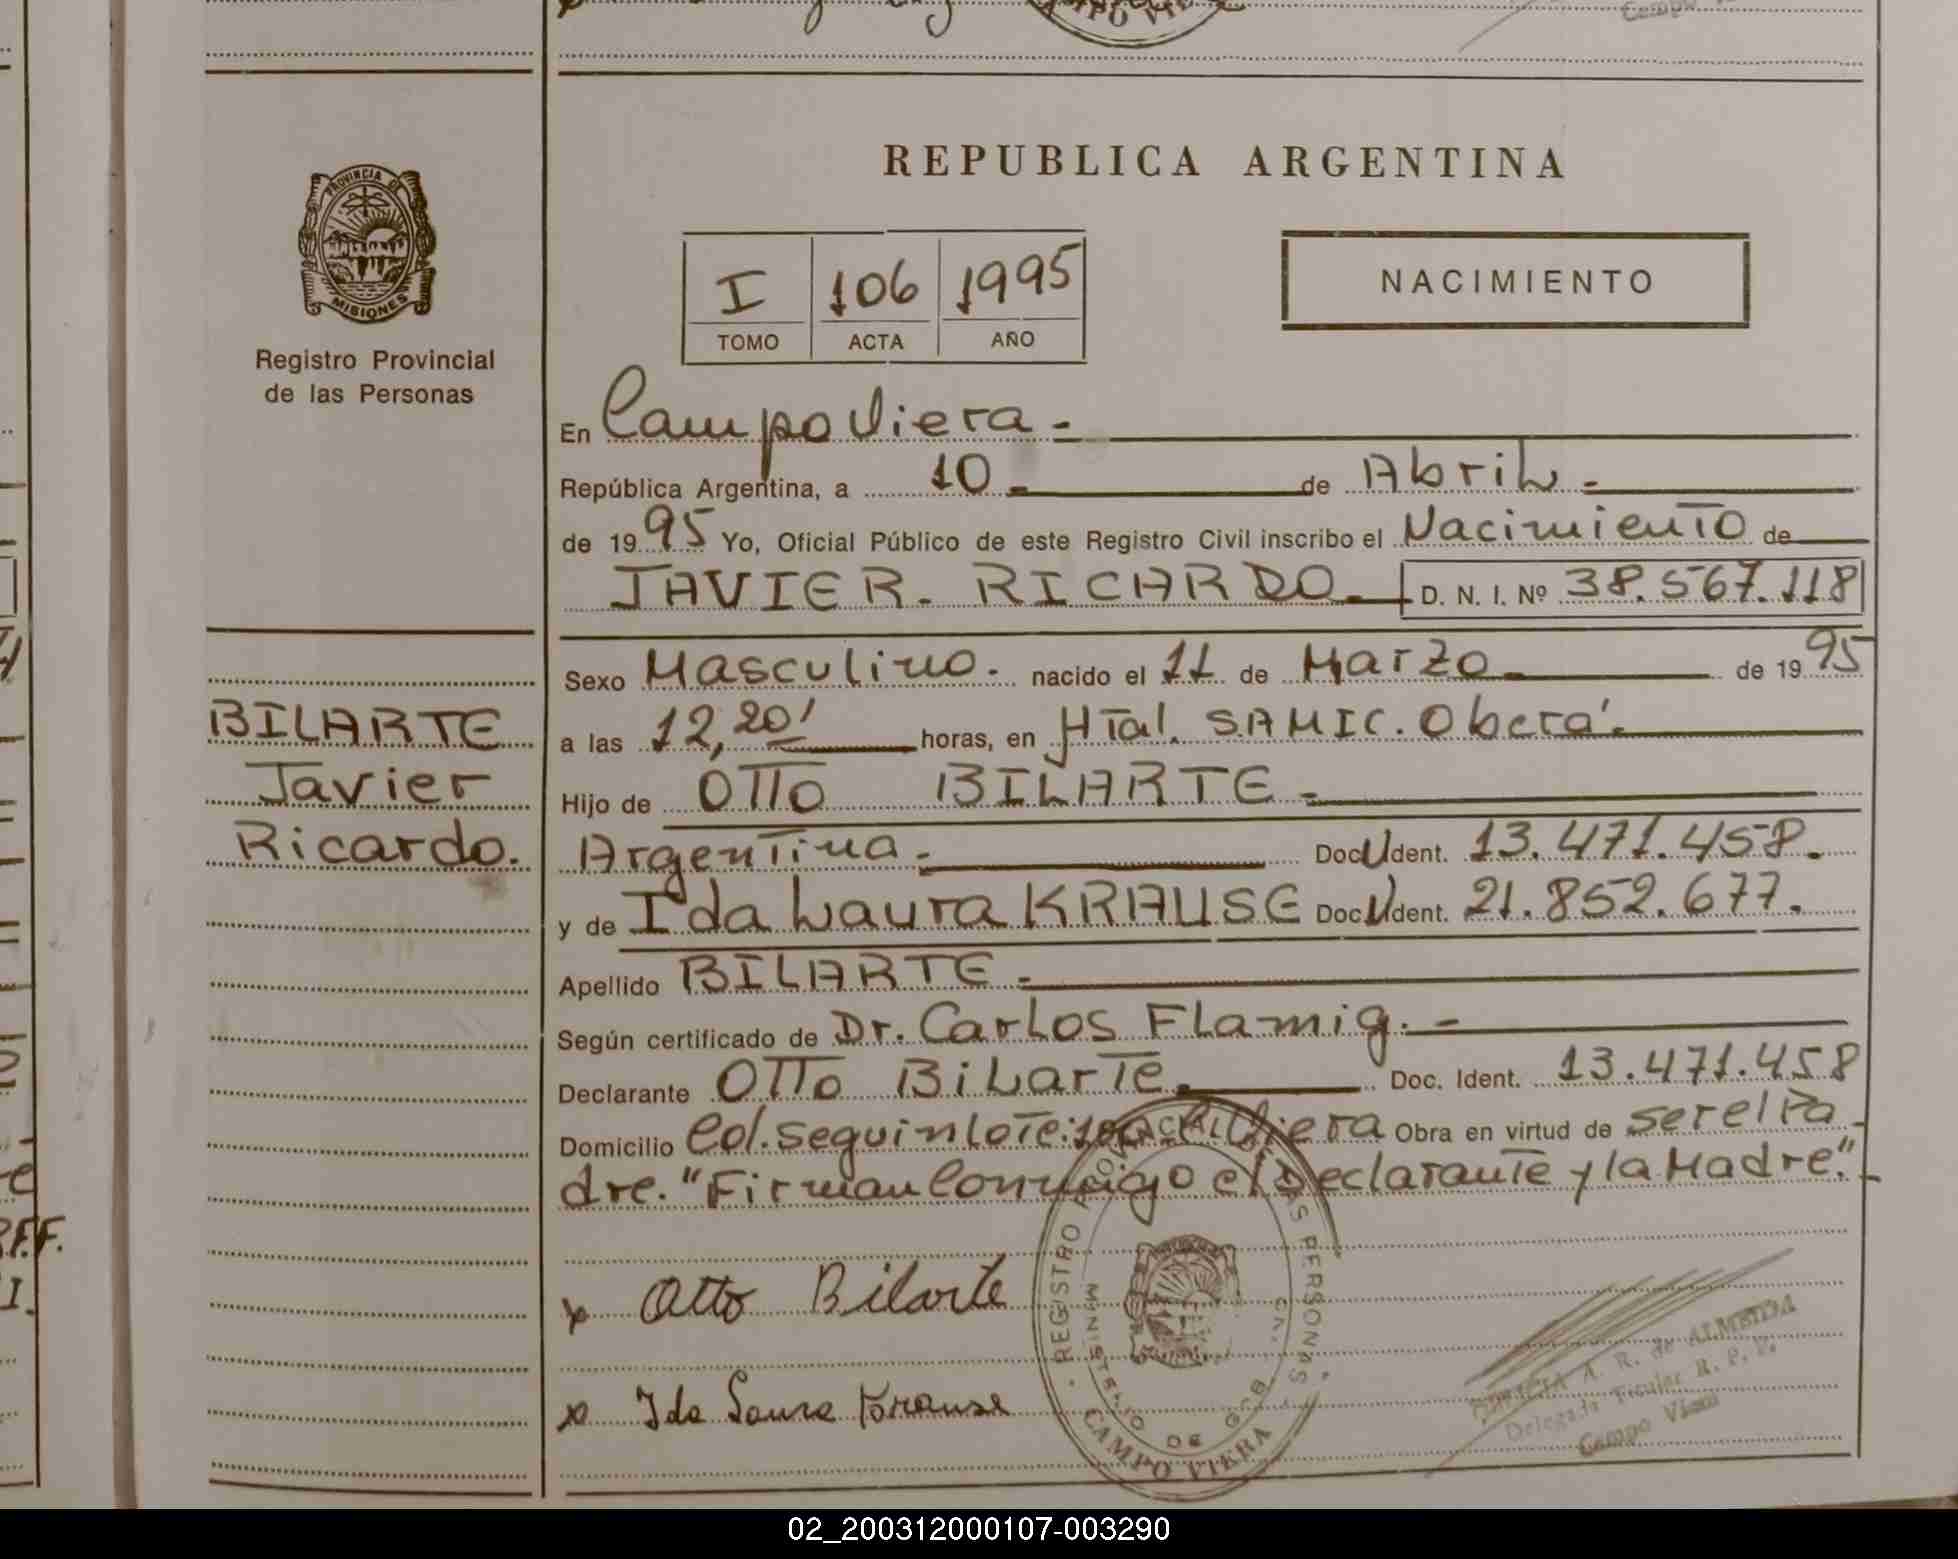 PROVINCIA DE
MISIONES
Registro Provincial
de las Personas
BILARTE
Javier
Ricardo.
REPUBLICA ARGENTINA
I 106 1995
TOMO ACTA AÑO
NACIMIENTO
En Campo Viera.-
República Argentina, a 10 de Abril.-
de 1995 Yo, Oficial Público de este Registro Civil inscribo el Nacimiento de
JAVIER. RICARDO.- D. N. I. Nº 38.567.118
Sexo Masculino. nacido el 11 de Marzo de 1995
a las 12,20' horas, en Htal. SAMIC. Oberá.-
Hijo de OTTO BILARTE.-
Argentina.- Doc U Ident. 13.471.458.
y de Ida Laura KRAUSE Doc U Ident. 21.852.677.
Apellido BILARTE.-
Según certificado de Dr. Carlos Flamig.-
Declarante OTTO Bilarte. Doc. Ident. 13.471.458
Domicilio Col. seguin Lote: Viera Obra en virtud de ser el Pa-
dre. "Firman Conmigo el Declarante y la Madre".-
x Otto Bilarte
x Ida Laura Krause
REGISTRO PROVINCIAL DE LAS PERSONAS
MINISTERIO DE GOB.
CAMPO VIERA
A. R. de ALMEIDA
Delegada Titular R. P. P.
Campo Viera
02_200312000107-003290